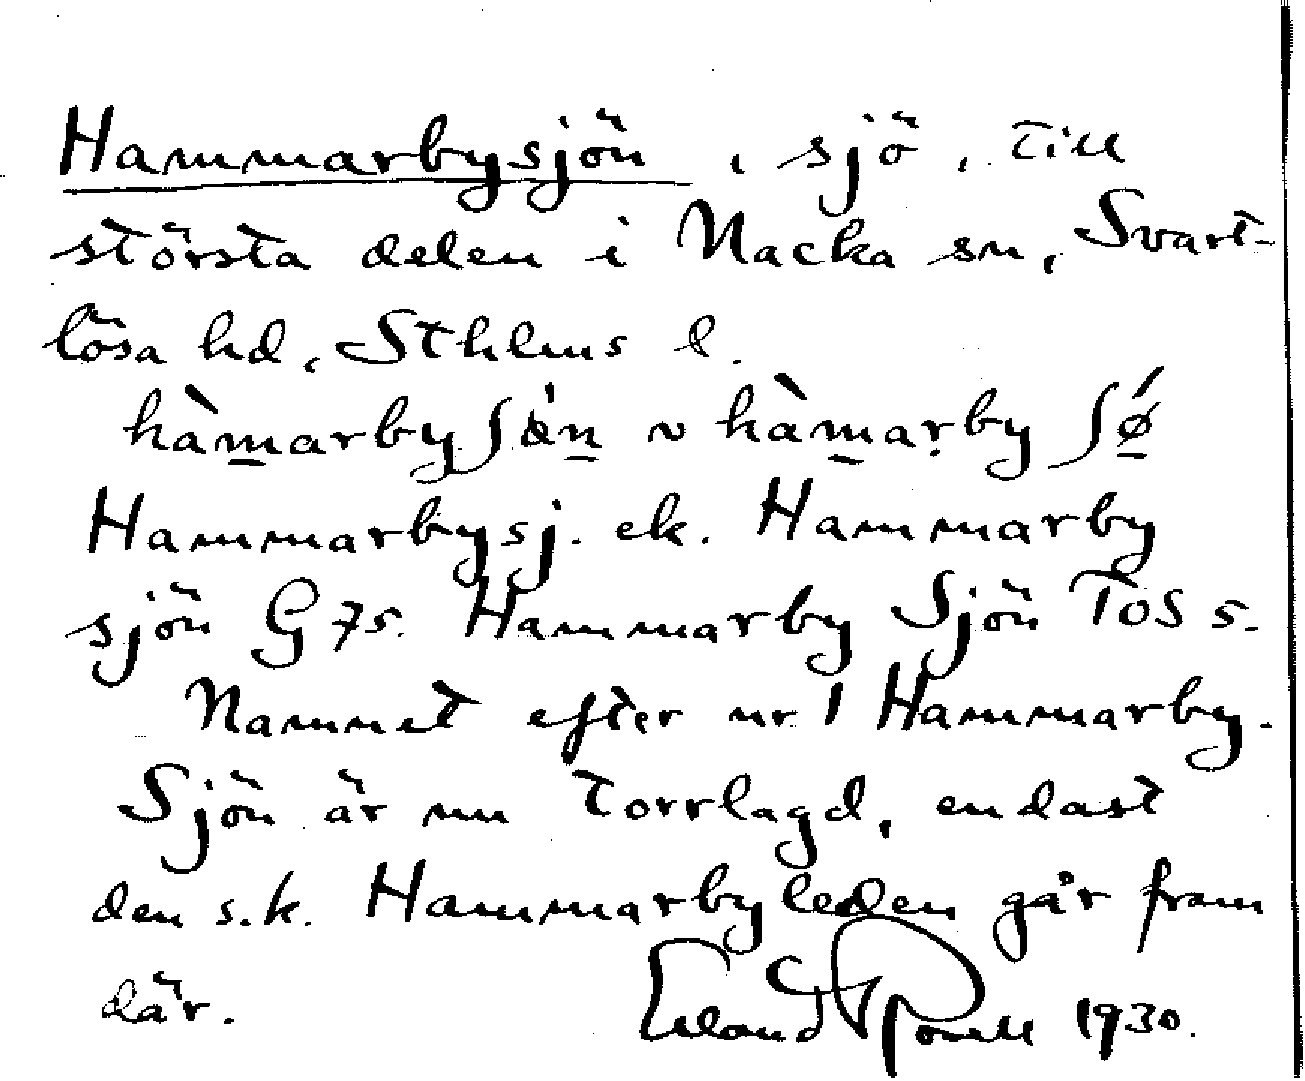 Hammarbysjön, sjö, till
största delen i Nacka sn, Svart-
lösa hd, Sthlms l.
hàm̲arbyʃǿn̲ ~ hàm̲aṛby ʃǿ̲
Hammarbysj. ek. Hammarby
sjön G 75. Hammarby Sjön TOS 5.
Namnet efter nr 1 Hammarby.
Sjön är nu torrlagd, endast
den s.k. Hammarbyleden går fram
där.
Erland 1930.